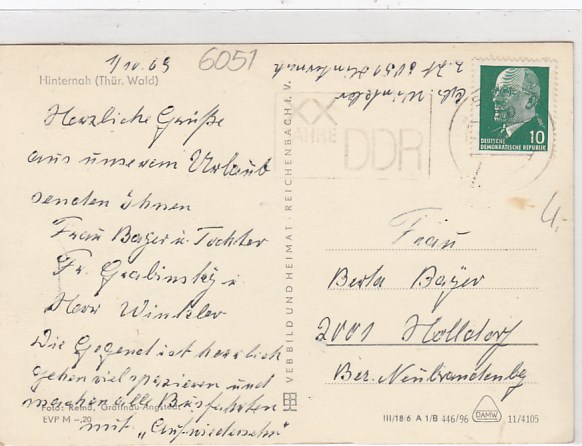 1/10.69
6051
Hinternah (Thür. Wald)
Herzliche Grüße
aus unserem Urlaub
senden Ihnen
Frau Bayer u. Tochter
Fr. Grabinsky u
Herr Winkler
Die Gegend ist herrlich
gehen viel spazieren und
machen alle Busfahrten
mit „Aufwiedersehn"
Foto: Remd, Gräfinau-Angstedt
EVP M –,20
z. Zt 6051 Hinternah
VEB BILD UND HEIMAT · REICHENBACH i. V.
XX
JAHRE
DDR
10
DEUTSCHE
DEMOKRATISCHE REPUBLIK
Frau
Berta Bayer
2001 Holldorf
Bez. Neubrandenbg
III/18 6 A 1/B 446/96 DAMW 11/4105